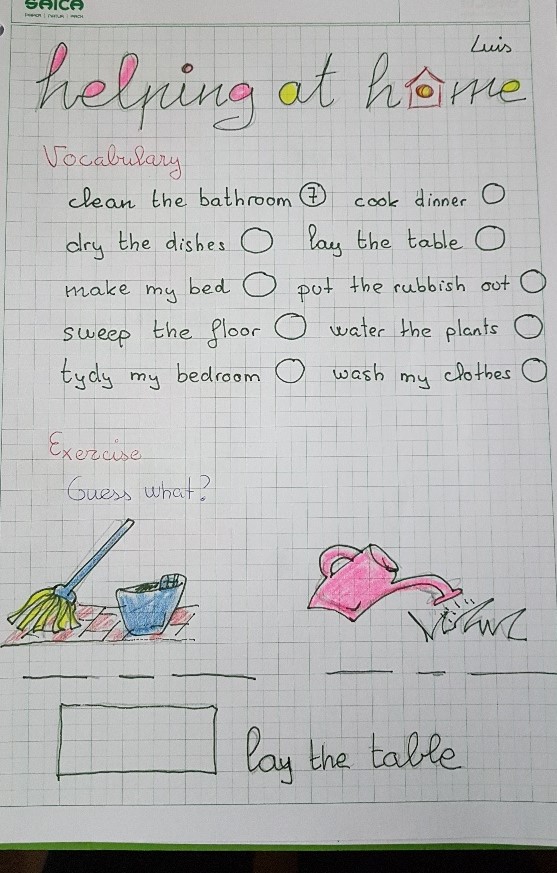 SAICA
Luis
helping at home
Vocabulary
clean the bathroom 7 cook dinner
dry the dishes lay the table
make my bed put the rubbish out
sweep the floor water the plants
tydy my bedroom wash my clothes
Exercise
Guess what?
lay the table